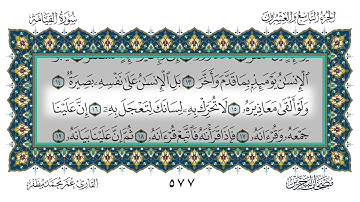 الجزء التاسع والعشرون
سورة القيامة
الْإِنسَٰنُ يَوْمَئِذٍۭ بِمَا قَدَّمَ وَأَخَّرَ ١٣ بَلِ الْإِنسَٰنُ عَلَىٰ نَفْسِهِۦ بَصِيرَةٌ ١٤
وَلَوْ أَلْقَىٰ مَعَاذِيرَهُۥ ١٥ لَا تُحَرِّكْ بِهِۦ لِسَانَكَ لِتَعْجَلَ بِهِۦٓ ١٦ إِنَّ عَلَيْنَا
جَمْعَهُۥ وَقُرْءَانَهُۥ ١٧ فَإِذَا قَرَأْنَٰهُ فَاتَّبِعْ قُرْءَانَهُۥ ١٨ ثُمَّ إِنَّ عَلَيْنَا بَيَانَهُۥ ١٩
القارئ عمر محمد مظفر
٥٧٧